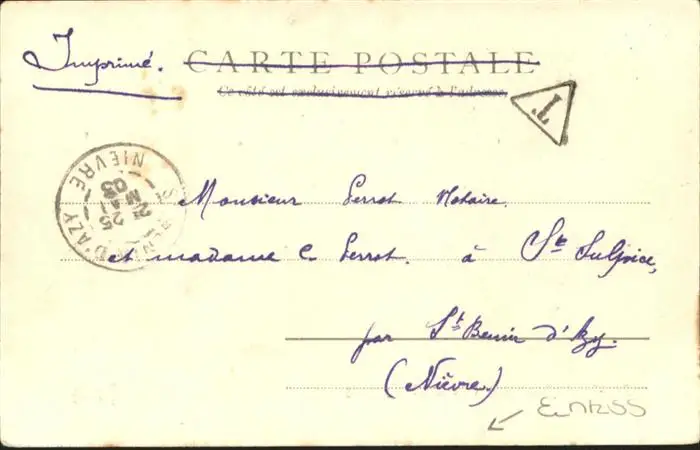 Imprimé.
CARTE POSTALE
Ce côté est exclusivement réservé à l'adresse.
T
NIÈVRE
25
MAI
03
D'AZY
Monsieur Perrot Notaire.
et madame C. Perrot. à St Sulpice,
par St Benin d'Azy.
(Nièvre.)
EINRISS